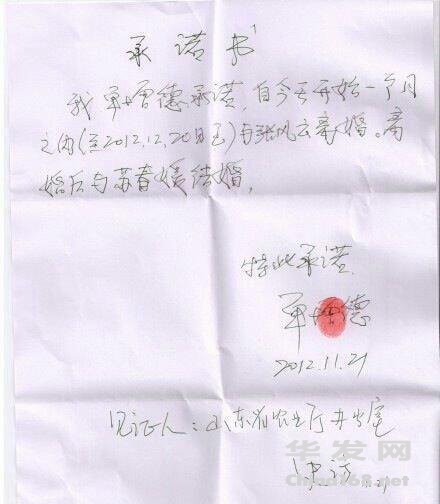 承诺书
我单增德承诺,自今天开始一个月
之内(至2012.12.20日至)与张凤云离婚。离
婚后与苏春媛结婚,
特此承诺.
单增德
2012.11.21
见证人:山东省农业厅办公室
华发网
China168.net